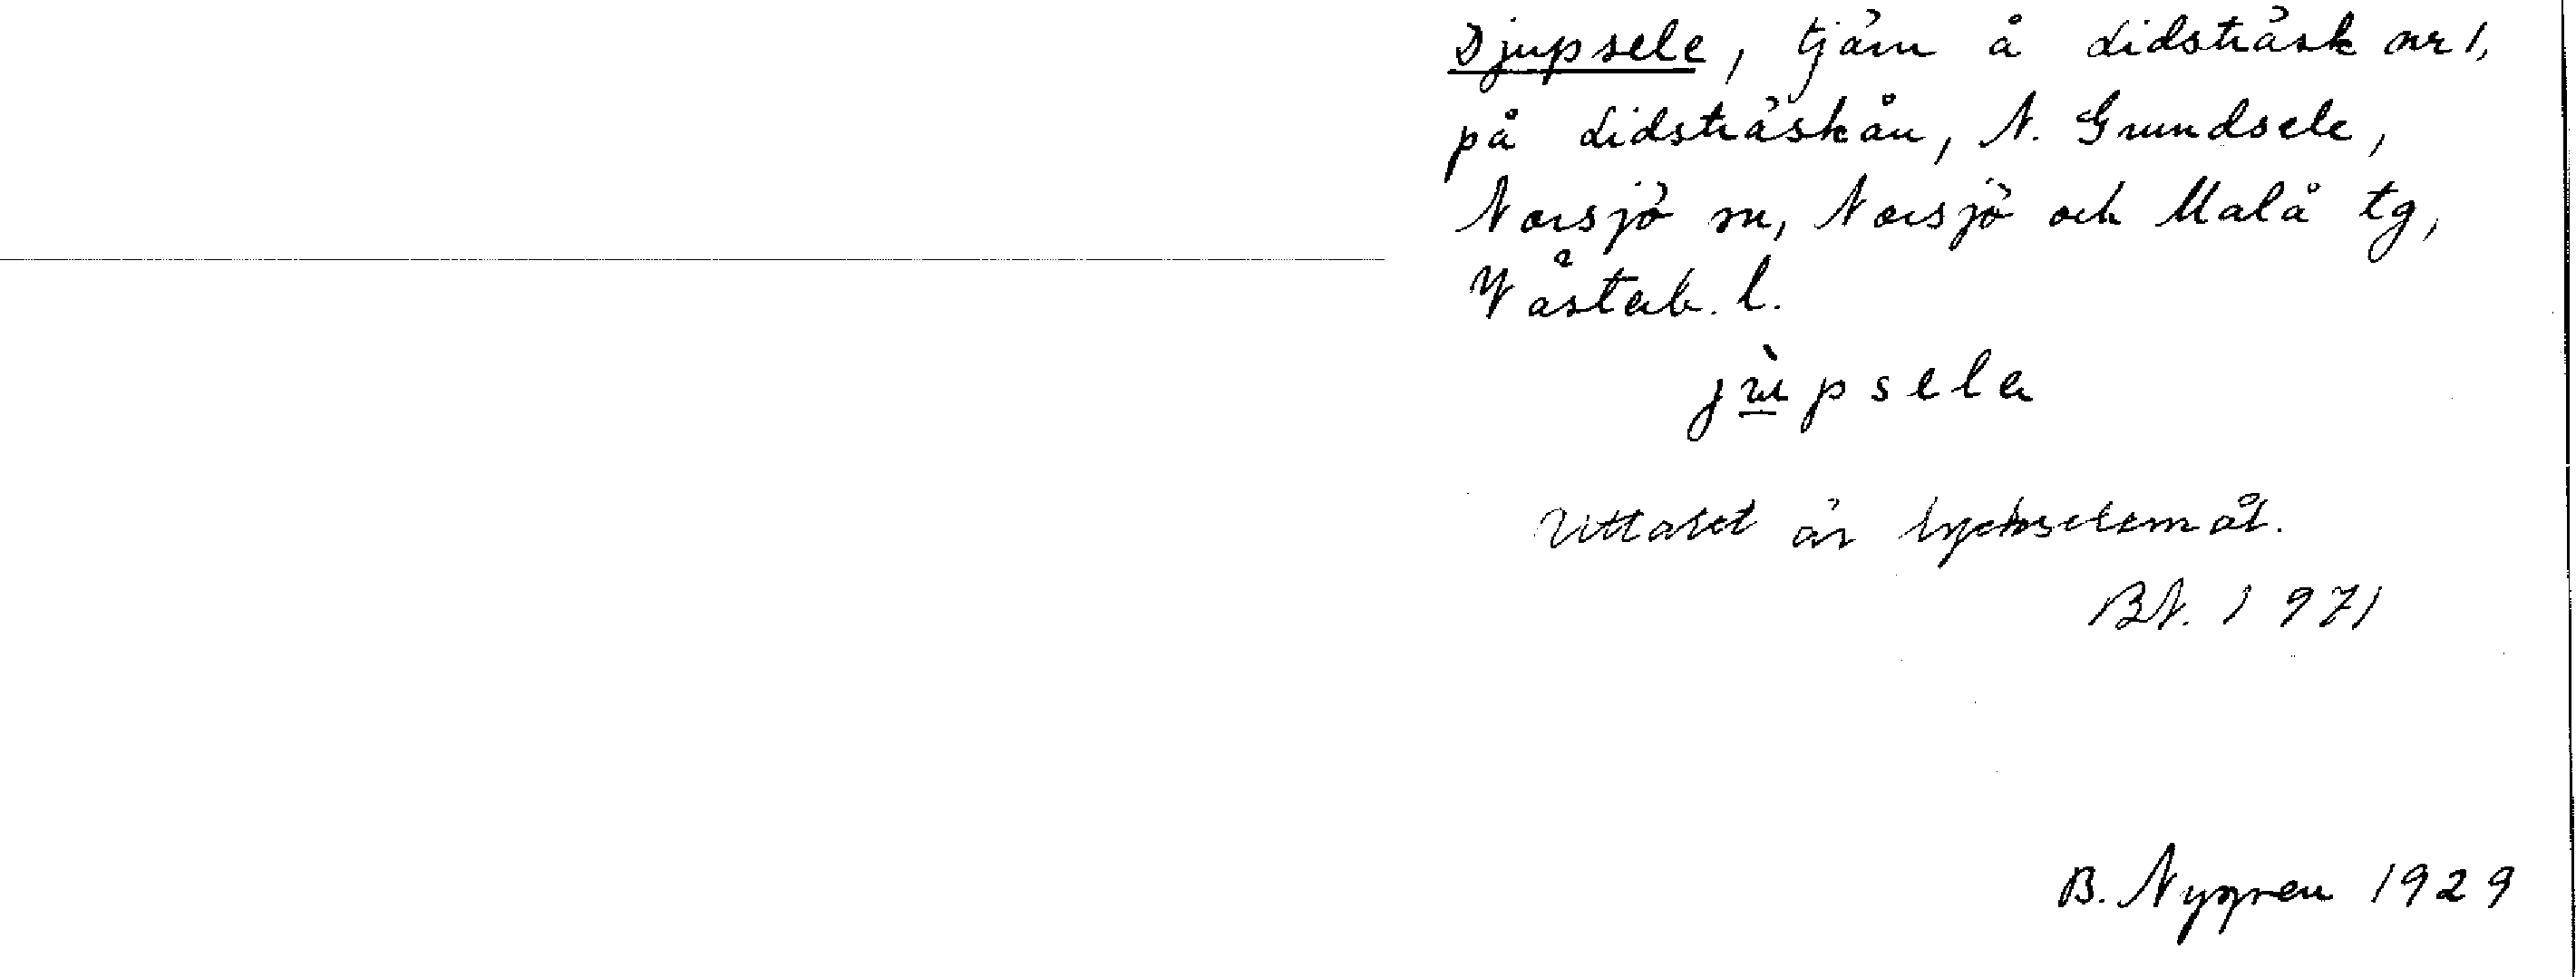 Djupsele, tjärn å Lidsträsk nr 1,
på Lidsträskån, N. Grundsele,
Norsjö sn, Norsjö och Malå tg,
Västerb. l.
jùpsela
Uttalet är lyckselemål.
BN. 1971
B. Nygren 1929